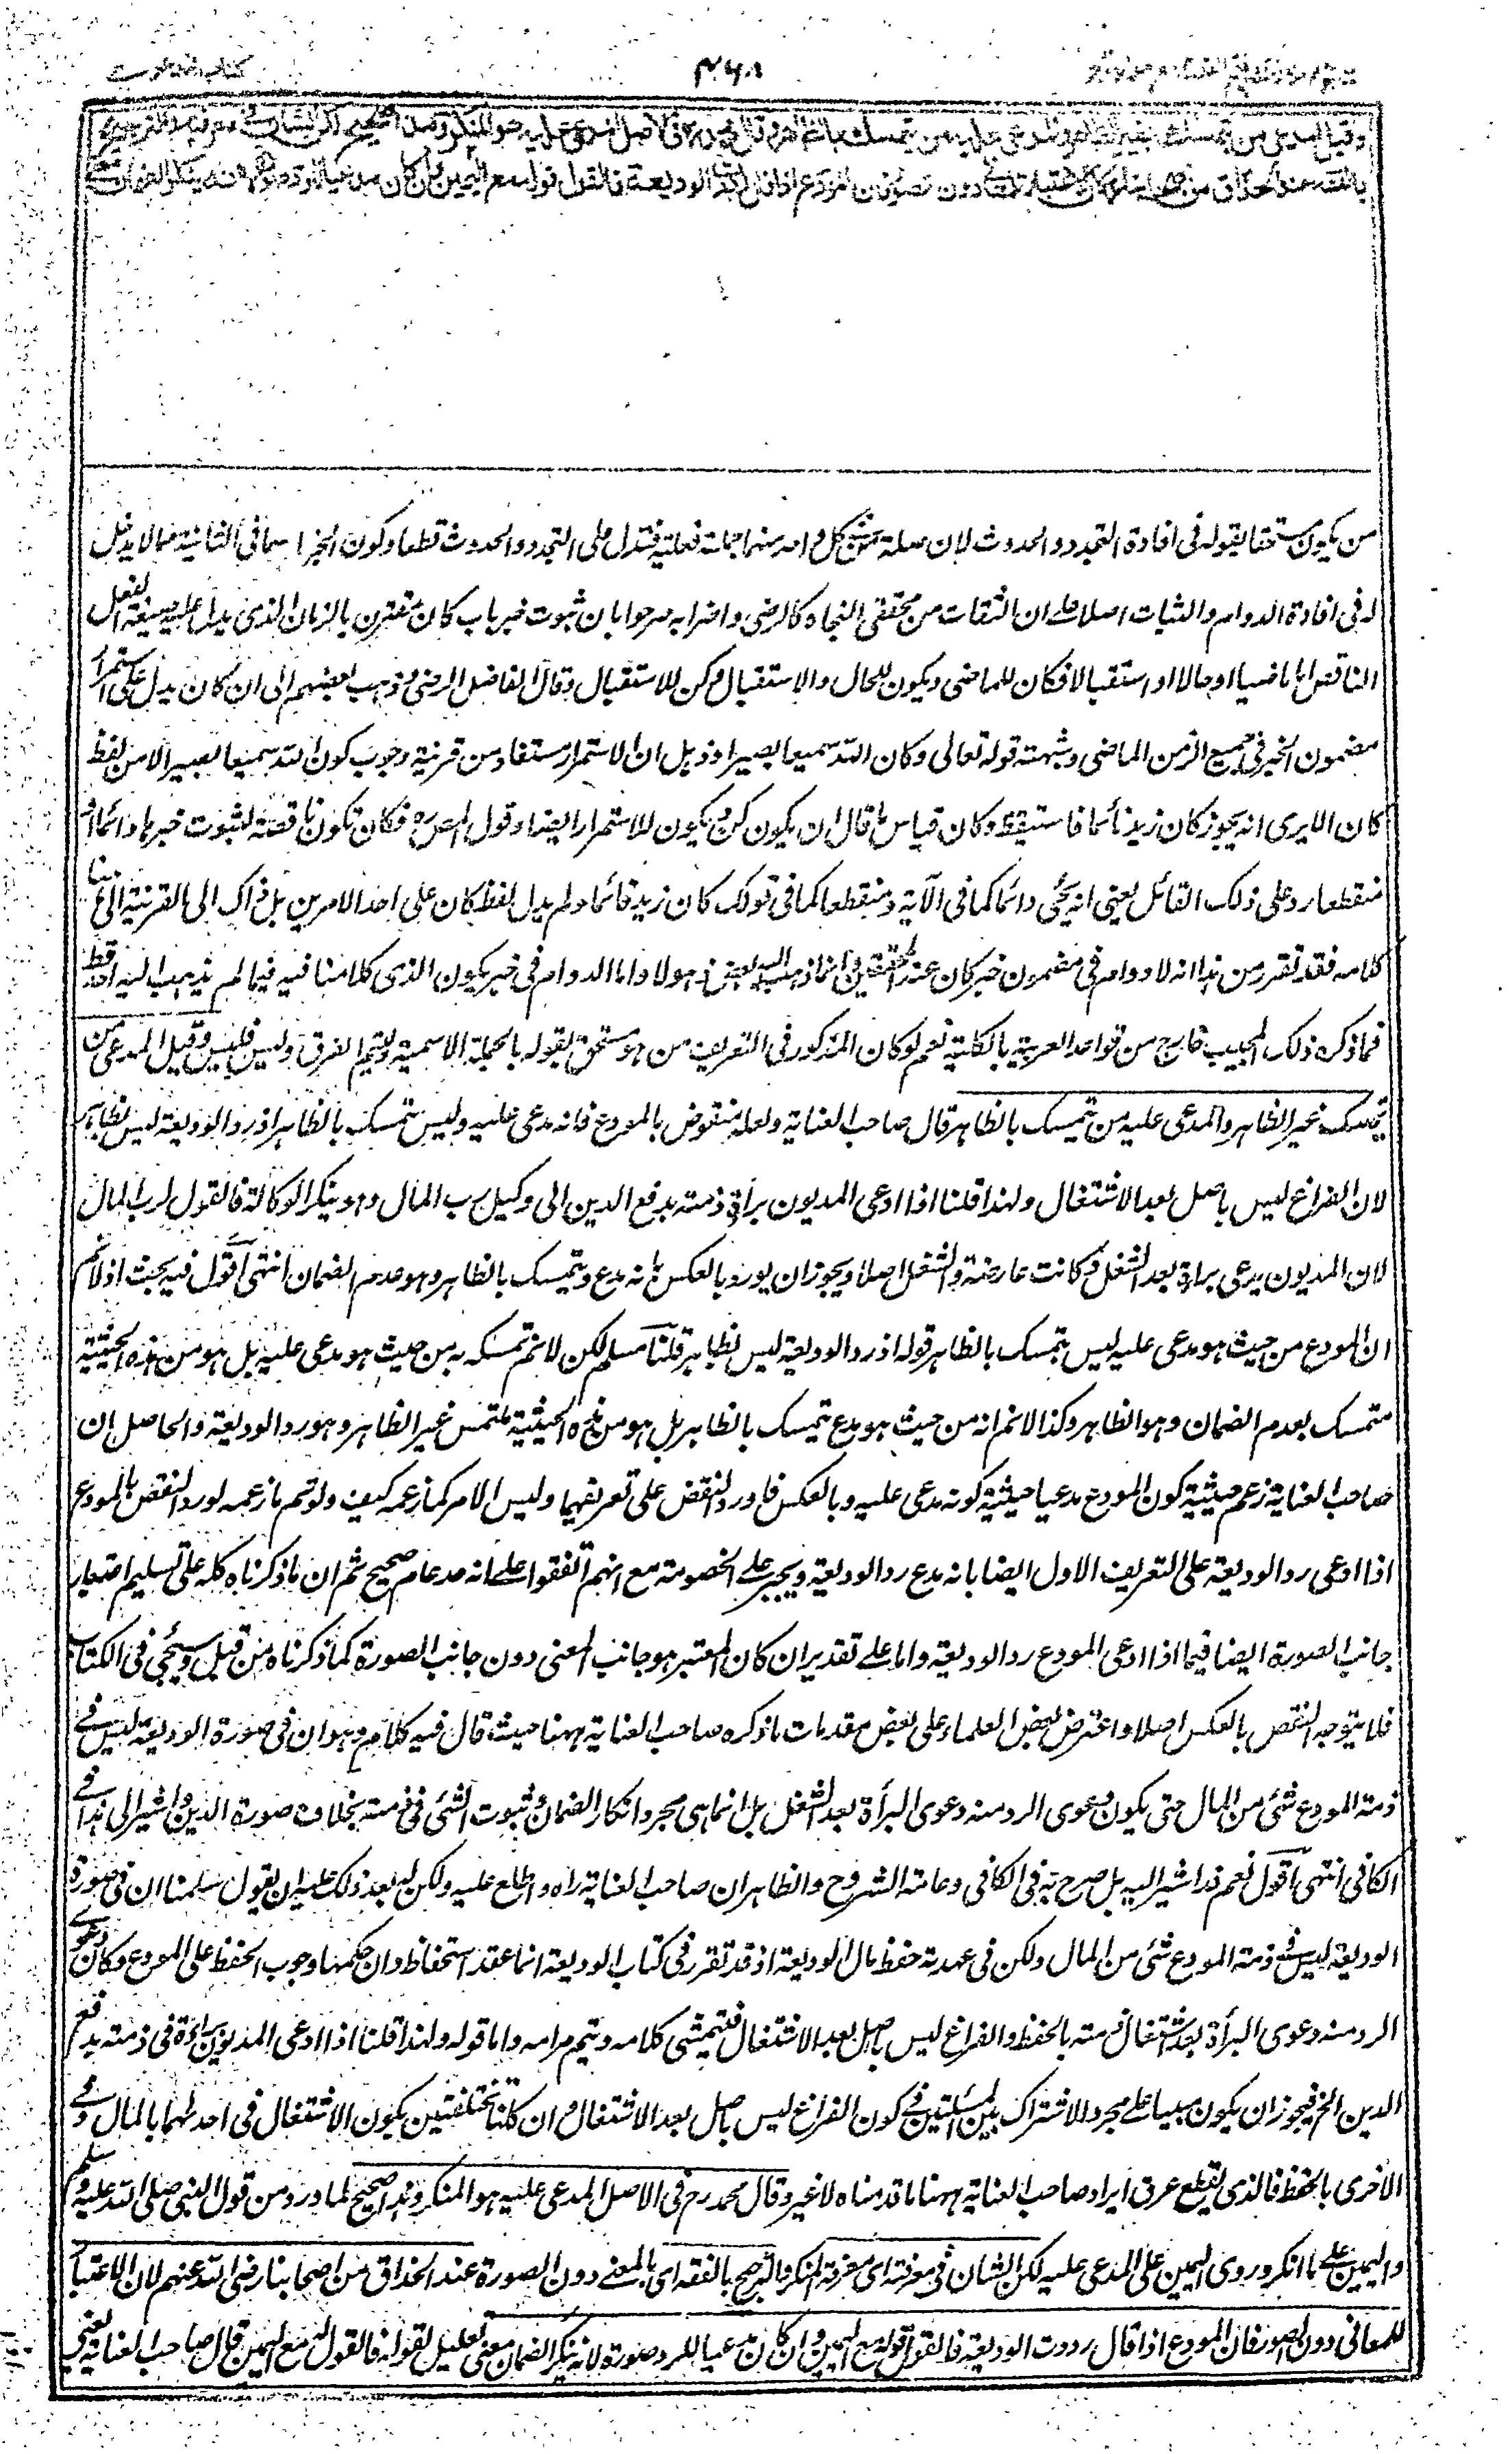 ۴۶۸
وقيل المدعي من يتمسك بغير الظاهر والمدعى عليه من يتمسك بالظاهر وقال محمد رح في الاصل المدعى عليه هو المنكر وهذا صحيح لكن الشان في معرفته والترجيح
بالفقه عند الحذاق من اصحابنا لان الاعتبار للمعاني دون الصور فان المودع اذا قال رددت الوديعة فالقول قوله مع اليمين وان كان مدعيا للرد صورة لانه ينكر الضمان
من يكون مستحقا بقوله في افادة التجدد والحدوث لان صلة من في كل واحد منهما جملة فعلية فتدل على التجدد والحدوث قطعا وكون الخبر اسما في الثانية مما لا يدخل
له في افادة الدوام والثبات اصلا على ان الثقات من محققي النحاة كالرضي واضرابه صرحوا بان ثبوت خبر باب كان مقترن بالزمان الذي يدل عليه صيغة الفعل
الناقص اما ماضيا او حالا او استقبالا فكان للماضي ويكون للحال والاستقبال وكن للاستقبال وقال الفاضل الرضي وذهب بعضهم الى ان كان يدل على استمرار
مضمون الخبر في جميع الزمن الماضي وشبهته قوله تعالى وكان الله سميعا بصيرا وذهل ان الاستمرار مستفاد من قرينة وجوب كون الله سميعا بصيرا لا من لفظ
كان الا يرى انه يجوز كان زيد نائما فاستيقظ وكان قياس ما قال ان يكون كن ويكون للاستمرار ايضا وقول المصره فكان تكون ناقصة لثبوت خبرها دائما او
منقطعا رد على ذلك القائل يعني انه يجئ دائما كما في الآية ومنقطعا كما في قولك كان زيد قائما ولم يدل لفظ كان على احد الامرين بل ذاك الى القرينة الى هنا
كلامه فقد تقرر من هذا انه لا دوام في مضمون خبر كان عند المحققين وانما ذهب اليه بعض ذهولا واما الدوام في خبر يكون الذي كلامنا فيه فيما لم يذهب اليه احد قط
فما ذكره ذلك المجيب خارج من قواعد العربية بالكلية نعم لو كان المذكور في التعريف من هو مستحق بقوله بالجملة الاسمية ويتم الفرق وليس فليس وقيل المدعي من
يتمسك غير الظاهر والمدعى عليه من يتمسك بالظاهر قال صاحب العناية ولعله منقوض بالمودع فانه مدعى عليه وليس يتمسك بالظاهر اذ رد الوديعة ليس بظاهر
لان الفراغ ليس باصل بعد الاشتغال ولهذا قلنا اذا ادعى المديون براءة ذمته بدفع الدين الى وكيل رب المال وهو ينكر الوكالة فالقول لرب المال
لان المديون يدعي براءة بعد الشغل فكانت عارضة والشغل اصلا ويجوز ان يورد بالعكس بانه مدع ويتمسك بالظاهر وهو عدم الضمان انتهى اقول فيه بحث اذ لا نم
ان المودع من حيث هو مدعى عليه ليس يتمسك بالظاهر قوله اذ رد الوديعة ليس بظاهر قلنا مسلم لكن لا نم تمسكه به من حيث هو مدعى عليه بل هو من هذه الحيثية
متمسك بعدم الضمان وهو الظاهر وكذا لا نم انه من حيث هو مدع يتمسك بالظاهر بل هو من هذه الحيثية ملتمس غير الظاهر وهو رد الوديعة والحاصل ان
صاحب العناية زعم حيثية كون المودع مدعيا حيثية كونه مدعى عليه وبالعكس فاورد النقض على تعريفهما وليس الامر كما زعمه كيف ولو تم ما زعمه لورد النقض بالمودع
اذا ادعى رد الوديعة على التعريف الاول ايضا بانه مدع رد الوديعة ويجبر على الخصومة مع انهم اتفقوا على انه حد عام صحيح ثم ان ما ذكرناه كله على تسليم اعتبار
جانب الصورة ايضا فيما اذا ادعى المودع رد الوديعة واما على تقدير ان كان المعتبر هو جانب المعنى دون جانب الصورة كما ذكرناه من قبل وسيجئ في الكتاب
فلا يتوجه النقض بالعكس اصلا واعترض بعض العلماء على بعض مقدمات ما ذكره صاحب العناية ههنا حيث قال فيه كلام وهو ان في صورة الوديعة ليس في
ذمة المودع شئ من المال حتى يكون دعوى الرد منه دعوى البرأة بعد الشغل بل انما هي مجرد انكار الضمان وثبوت الشئ في ذمته بخلاف صورة الدين واشير الى هذا في
الكافي انتهى اقول نعم قد اشير اليه بل صرح به في الكافي وعامة الشروح والظاهر ان صاحب العناية راه واطلع عليه ولكن له بعد ذلك عليه ان يقول سلمنا ان في صورة
الوديعة ليس في ذمة المودع شئ من المال ولكن في عهدته حفظ مال الوديعة اذ قد تقرر في كتاب الوديعة انها عقد استحفاظ وان حكمها وجوب الحفظ على المودع وكان دعوى
الرد منه دعوى البرأة بعد اشتغال ذمته بالحفظ والفراغ ليس باصل بعد الاشتغال فيتمشى كلامه ويتم مرامه واما قوله ولهذا قلنا اذا ادعى المديون براءة في ذمته بدفع
الدين الخ فيجوز ان يكون مبنيا على مجرد الاشتراك بين المسئلتين في كون الفراغ ليس باصل بعد الاشتغال وان كانتا مختلفتين بكون الاشتغال في احدهما بالمال وفي
الاخرى بالحفظ فالذي يقطع عرق ايراد صاحب العناية ههنا ما قدمناه لا غير وقال محمد رح في الاصل المدعى عليه هو المنكر وهذا صحيح لما ورد من قول النبي صلى الله عليه وسلم
واليمين على ما انكر وروي اليمين على المدعى عليه لكن الشان في معرفته اي معرفة المنكر والترجيح بالفقه اي بالمعنى دون الصورة عند الحذاق من اصحابنا رضي الله عنهم لان الاعتبار
للمعاني دون الصور فان المودع اذا قال رددت الوديعة فالقول قوله مع اليمين وان كان مدعيا للرد صورة لانه ينكر الضمان معنى تعليل لقوله فالقول له مع اليمين قال صاحب العناية يعني